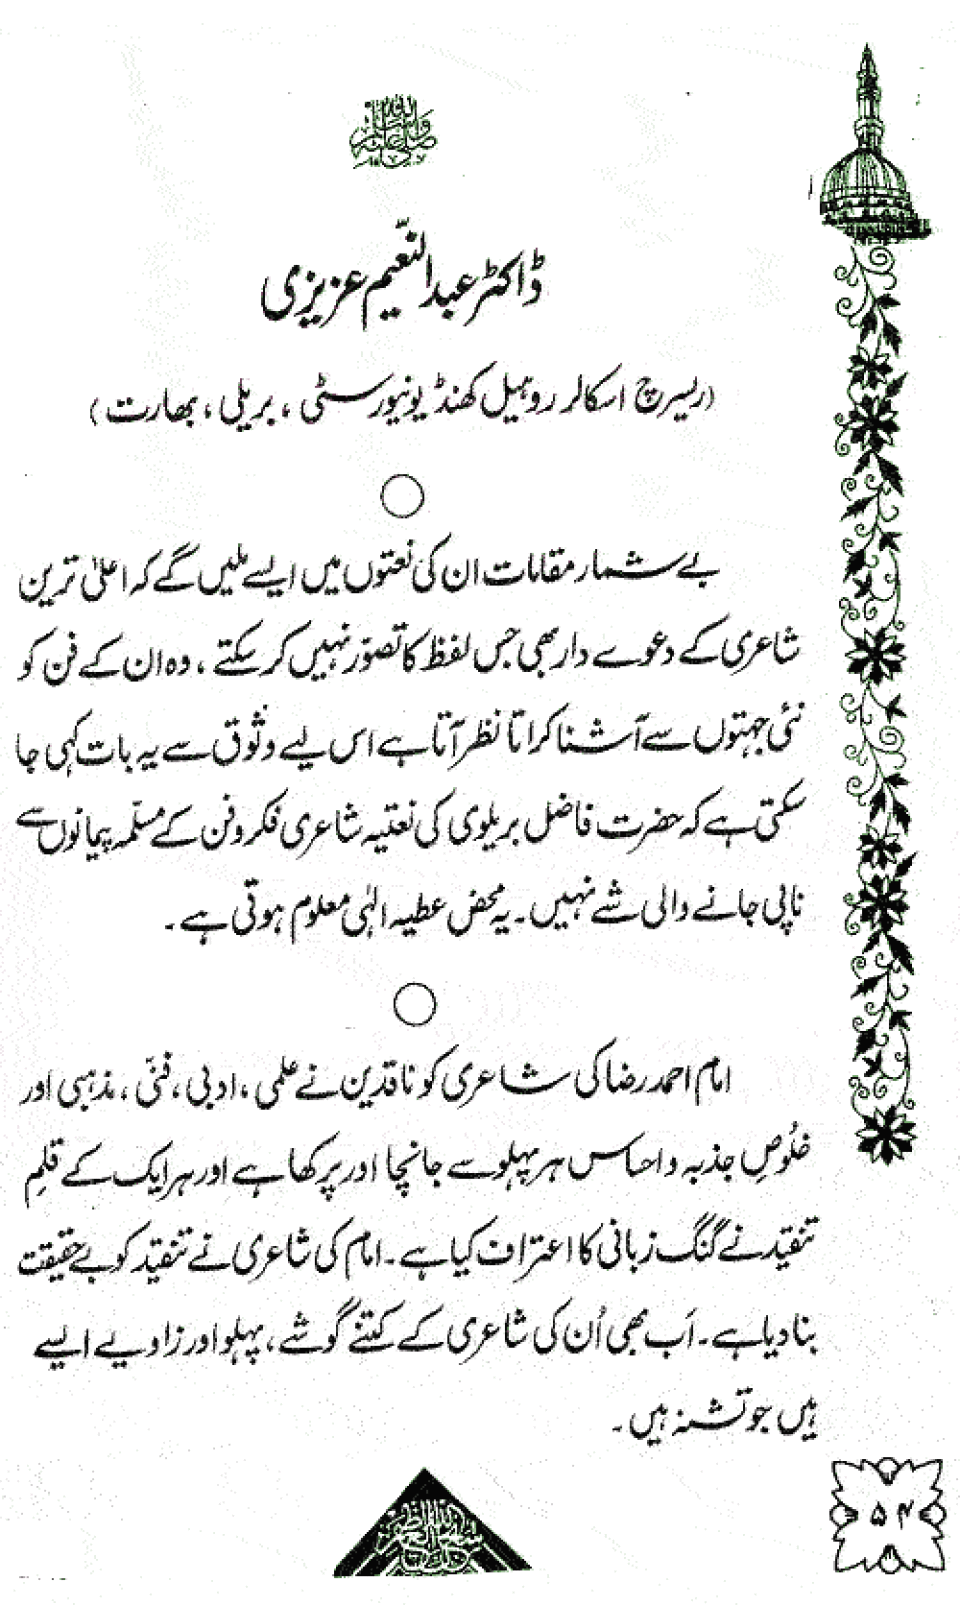 صلی اللہ علیہ وسلم
ڈاکٹر عبدالنعیم عزیزی
(ریسرچ اسکالر روہیل کھنڈ یونیورسٹی ، بریلی ، بھارت)
بے شمار مقامات ان کی نعتوں میں ایسے ملیں گے کہ اعلیٰ ترین
شاعری کے دعوے دار بھی جس لفظ کا تصوّر نہیں کر سکتے ، وہ ان کے فن کو
نئی جہتوں سے آشنا کراتا نظر آتا ہے اس لیے وثوق سے یہ بات کہی جا
سکتی ہے کہ حضرت فاضل بریلوی کی نعتیہ شاعری فکر و فن کے مسلّمہ پیمانوں سے
ناپی جانے والی شے نہیں ۔ یہ محض عطیہ الٰہی معلوم ہوتی ہے ۔
امام احمد رضا کی شاعری کو ناقدین نے علمی ، ادبی ، فنّی ، مذہبی اور
خُلوصِ جذبہ و احساس ہر پہلو سے جانچا اور پرکھا ہے اور ہر ایک کے قلمِ
تنقید نے گنگ زبانی کا اعتراف کیا ہے ۔ امام کی شاعری نے تنقید کو بے حقیقت
بنا دیا ہے ۔ اَب بھی اُن کی شاعری کے کتنے گوشے ، پہلو اور زاویے ایسے
ہیں جو تشنہ ہیں ۔
۵۴